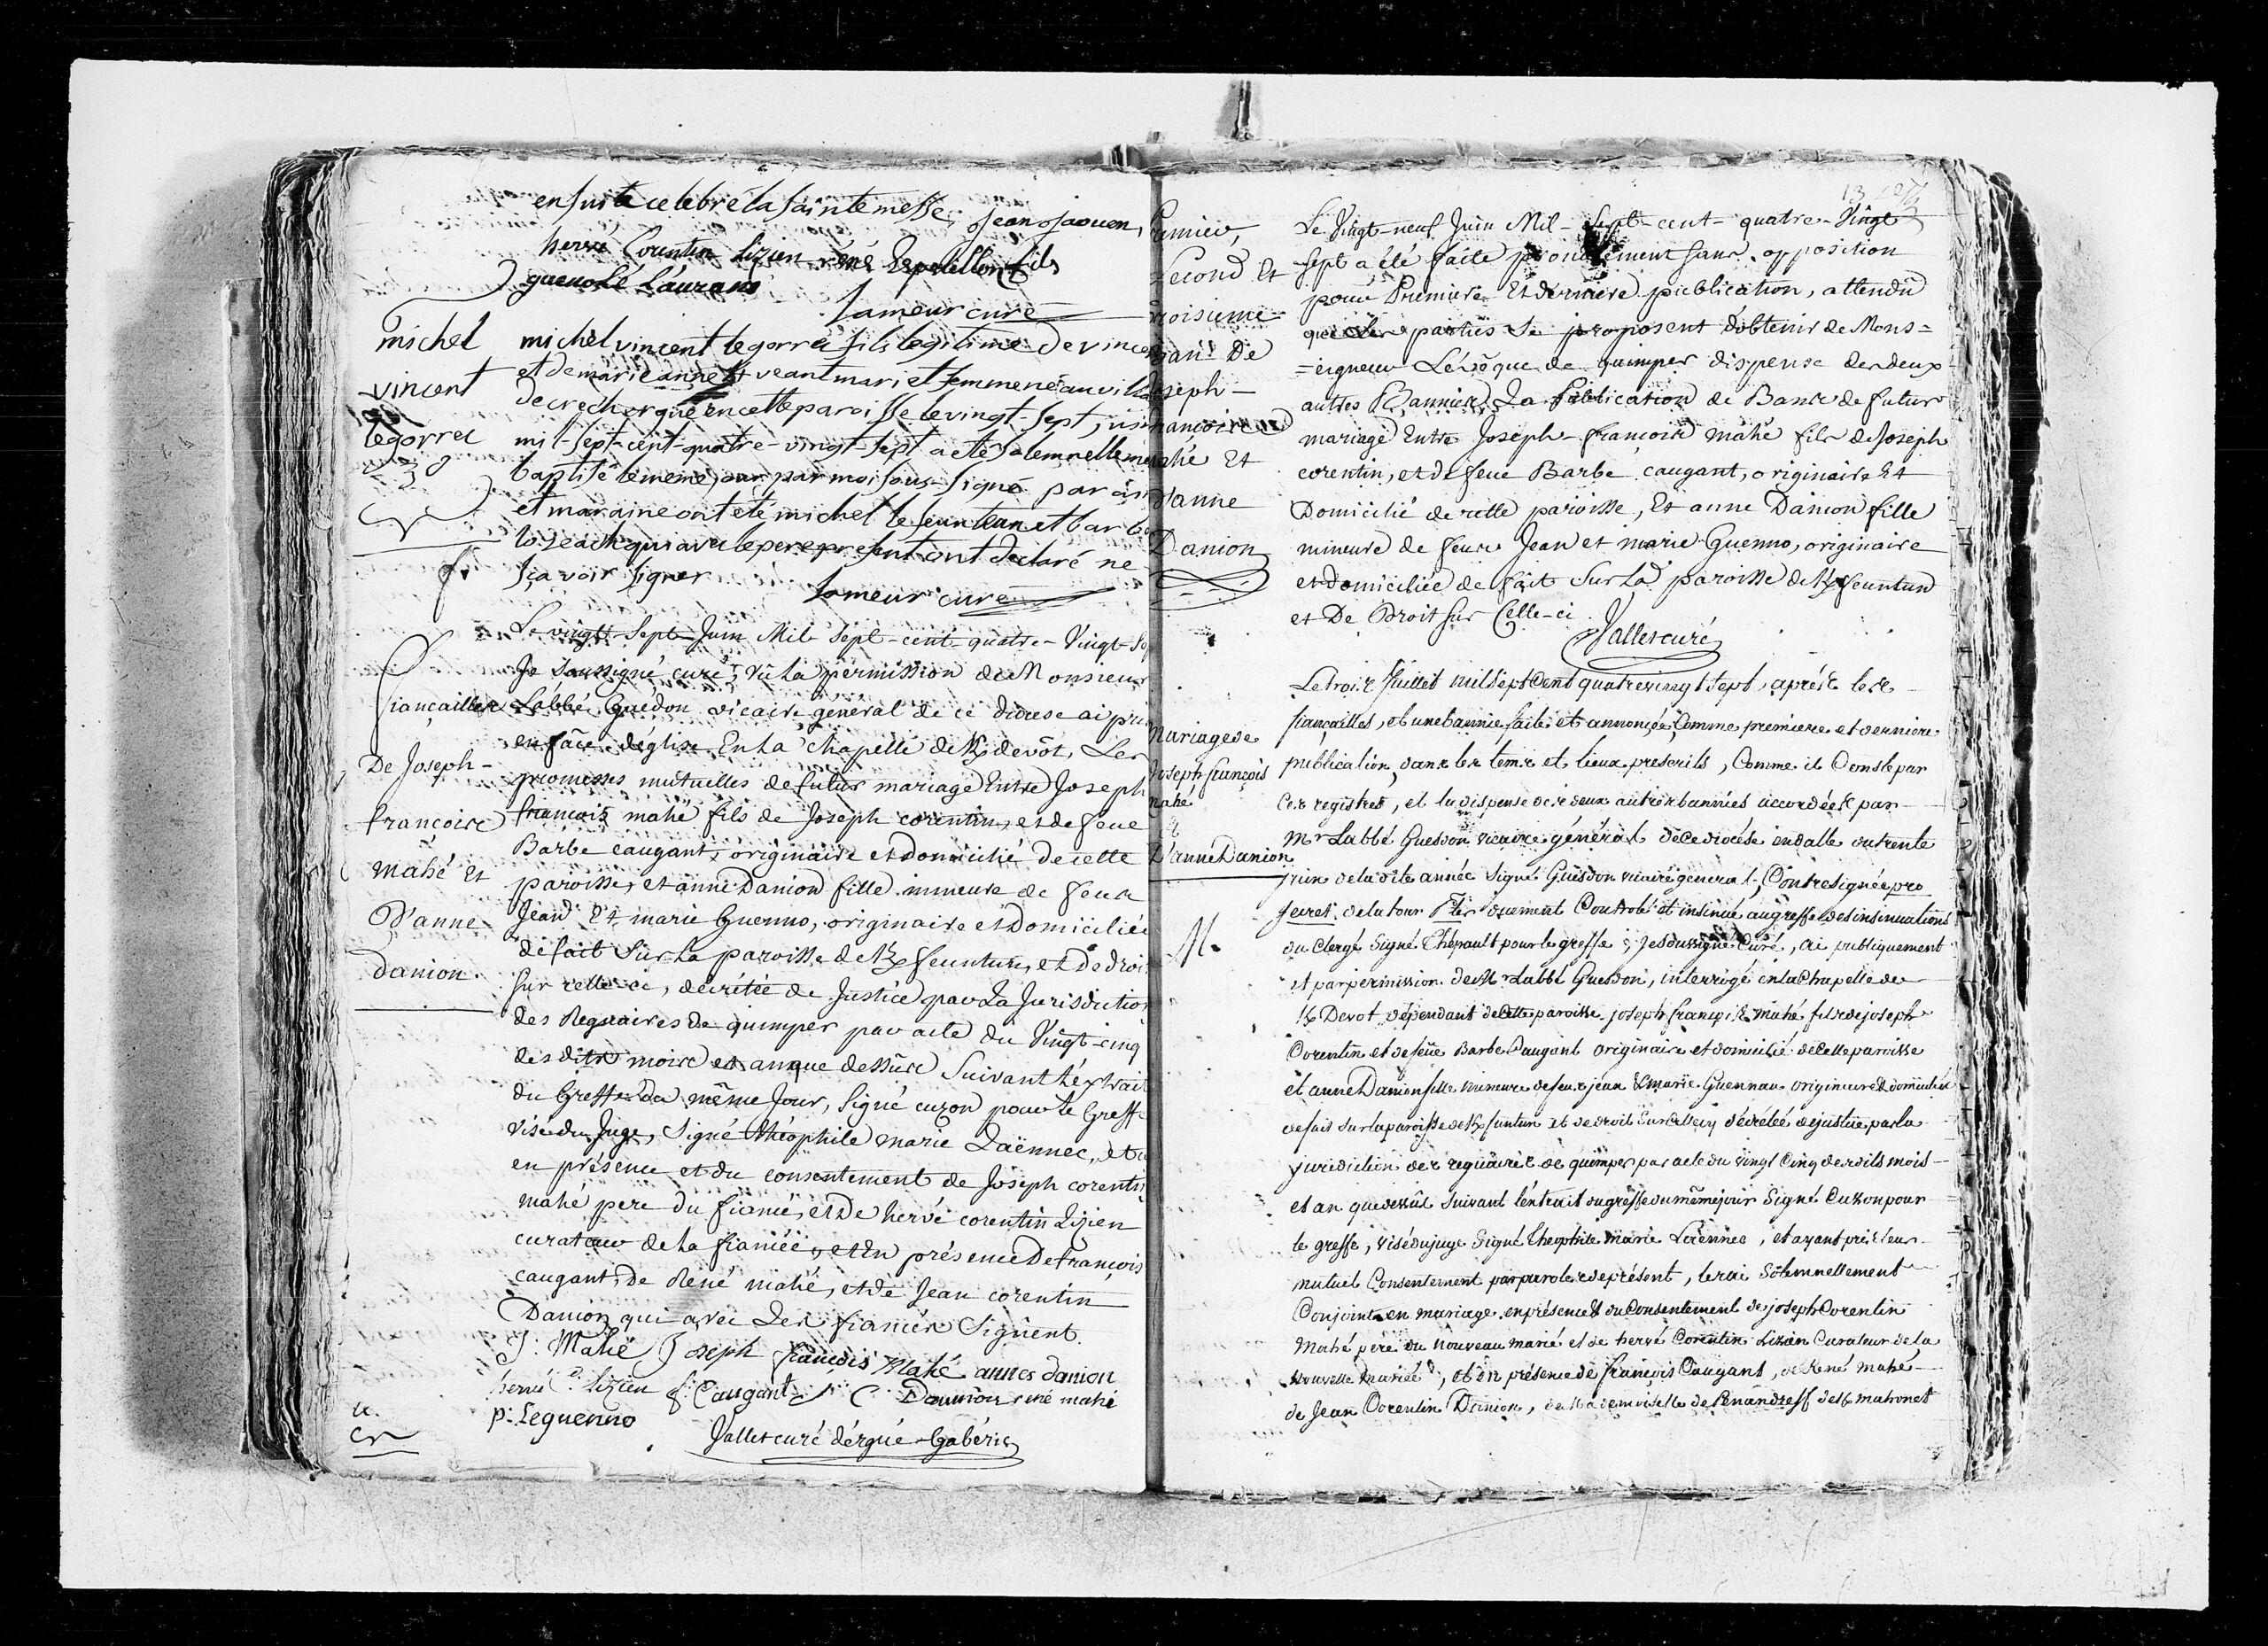 ensuite celebré la sainte messe, Jean Jaouen,
hervé Corentin lizien réné fils
guenolé Laurans
Lameur curé
michel
vincent
legorrec
michel vincent legorrec fils legitime de vincent
et de marie anne mari et femme né au vill
de en cette paroisse le vingt-sept juin
mil-sept-cent-quatre-vingt-sept a été solemnellemen
baptisé le meme jour par moi sous-signé parain
et maraine ont été michel le feunteun et barbe
qui avec le pere present ont declaré ne
sçavoir signer
Lameur curé
fiançailles
De Joseph-
françoise
mahé Et
D'anne
danion
Le vingt-Sept Juin Mil sept-cent-quatre-Vingt-Sep
Je soussigné curé, vû la permission de Monsieur
Labbé Guédon vicaire général de ce diocese ai pris
en façe d'église En La chapelle de K/devôt, Les
promesses mutuelles de futur mariage Entre Joseph
françois mahé fils de Joseph corentin, et de feue
Barbe caugant, originaire et domicilié de cette
paroisse, et anne Danion fille mineure de feux
Jean Et marie Guenno, originaire et Domiciliée
de fait Sur La paroisse de K/feunteun, et De droit
Sur celle-ci, décrétée de Justice par La Jurisdiction
des Reguaires de quimper par acte du Vingt-cinq
des dits mois et an que dessus Suivant L'extrait
du Greffe du même Jour, Signé cuzon pour le Greffe
visé du Juge, Signé théophile marie Laënnec, et ce
en présence et du consentement de Joseph corentin
mahé pere du fiancé, et De hervé corentin Lizien
curateur de la fiancée, et En présence De françois
caugant, de René mahé, et de Jean corentin
Danion qui avec Les fiancés Signent.
J: Mahé Joseph françois Mahé annes danion
hervé C. lizien f: Caugant J C Dannion rené mahé
p: Leguenno
Vallet curé d'ergué-Gabéric
Premier,
Second Et
troisieme
ban De
Joseph-
françoise
mahé Et
D'anne
Danion
Le Vingt-neuf Juin Mil-Sept-cent-quatre-Vingt
Sept a été faite sans opposition
pour Premiere Et derniere publication, attendu
que Les parties Se proposent d'obtenir de Mons=
=eigneur L'évêque de quimper dispense des deux
autres Bannies, La Publication de Bans de futur
mariage Entre Joseph-françois mahé fils de Joseph
corentin, et de feue Barbe caugant, originaire Et
Domicilié de cette paroisse, Et anne Danion fille
mineure de feux Jean et marie Guenno, originaire
et domiciliée de fait Sur La paroisse de K/feunteun
et De Droit Sur Celle-ci
Vallet curé
Mariage de
Joseph françois
Mahé
&
D'anne Danion
Le trois Juillet mil sept Cent quatrevingt sept, après les
fiançailles, et une bannie faite et annonçée Comme premiere et derniere
publication, dans les tems et lieux prescrits, Comme il Conste par
Ces registres, et la dispense de deux autres bannies accordées par
Mr Labbé Guesdon vicaire général de Ce diocése en datte du trente
juin de la dite année Signé Guesdon vicaire géneral, Contresignée pro
secret. de la tour Duement Controlé et insinué au greffe des insinuations
du Clergé Signé Chépault pour le greffe; je soussigné Curé, ai publiquement
et par permission de Mr Labbé Guesdon, interrogé en la Chapelle de
K/Devot dépendant de Cette paroisse joseph françois mahé fils de joseph
Corentin et de feüe Barbe Caugant originaire et domicilié de Cette paroisse
et anne Danion fille mineure de feux jean & marie Guennau originaire & domiciliée
de fait sur la paroisse de K/funtun et de droit Sur Celle cy décrétée de justice par la
jurisdiction des reguaires de quimper par acte du vingt Cinq des dits mois
et an que dessus suivant l'extrait du greffe du même jour Signé Cuzon pour
le greffe, visé du juge Signé Theophile marie Laënnec, et ayant pris leur
mutuel Consentement par paroles de présent, les ai Solemnellement
Conjoints en mariage en présence & du Consentement de joseph Corentin
Mahé pere du nouveau marié et de hervé Corentin Lizien Curateur de la
nouvelle mariée, et en présence de françois Caugant, de René mahé
de Jean Corentin Danion, de Mademoiselle de Penandreff de K/mahonet